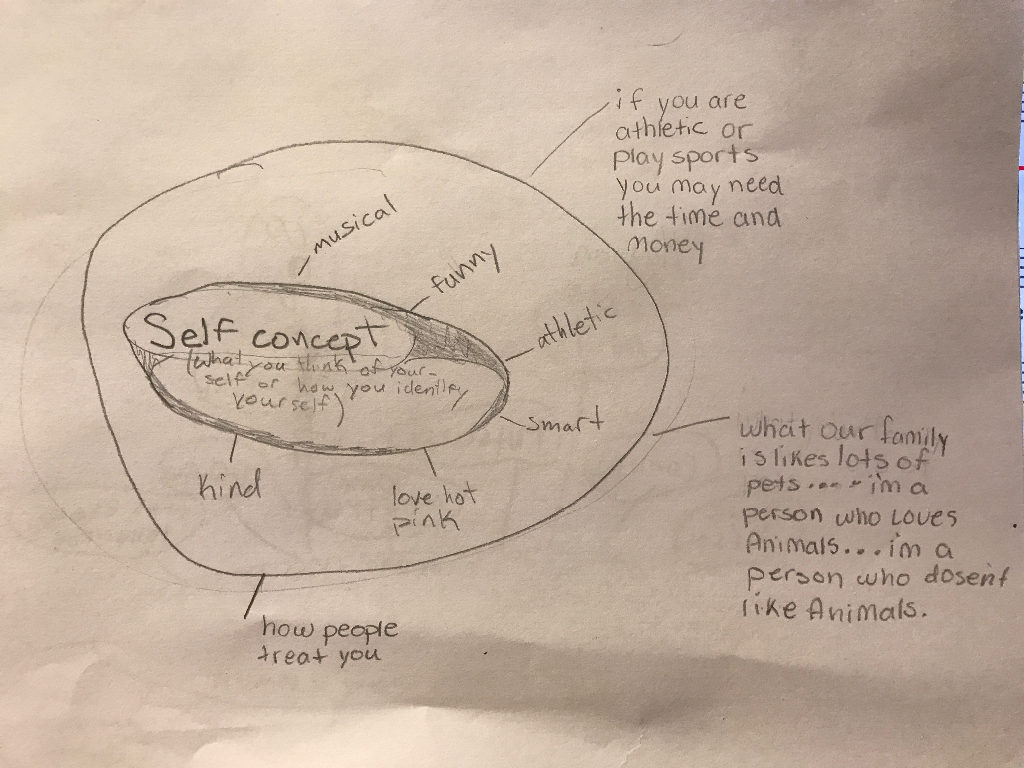 if you are
athletic or
play sports
you may need
the time and
money
musical
funny
athletic
Self concept
(what you think of your-
self or how you identify
yourself)
smart
kind
love hot
pink
what our family
is likes lots of
pets.... i'm a
person who loves
Animals... i'm a
person who dosen't
like Animals.
how people
treat you